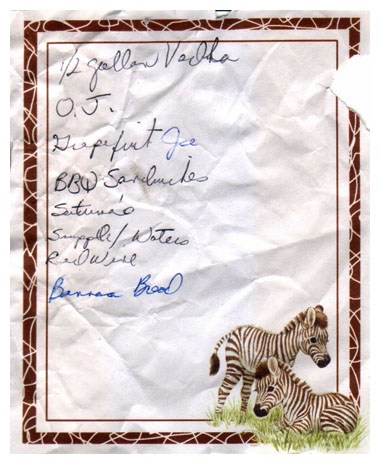 1/2 gallon Vodka
O.J.
Grapefruit Joe
BBQ Sandwiches
Snapple/Waters
Red Wine
Banana Bread